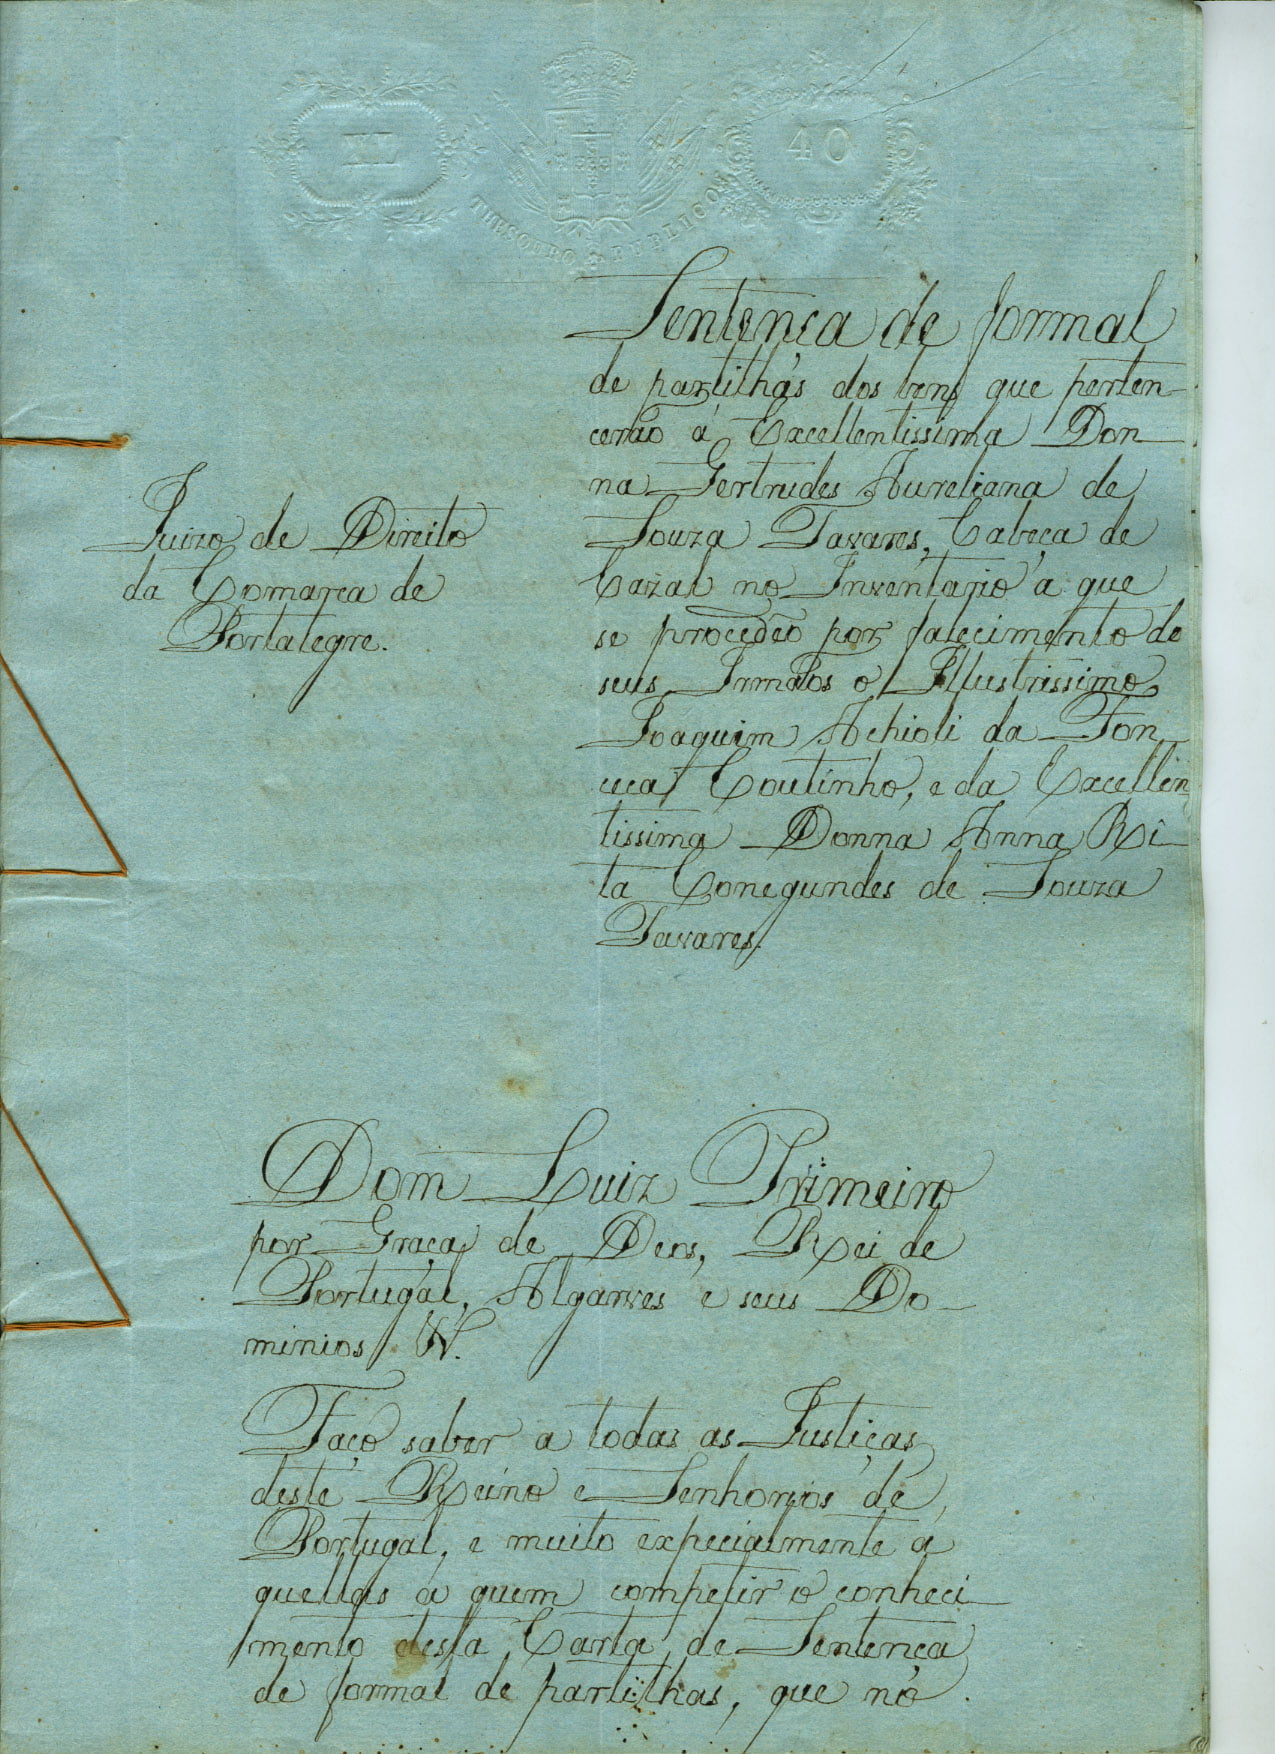 XL
40 S
THESOURO PUBLICO
Sentença de formal
de partilhas dos bens que perten-
cerão á Excellentissima Don-
na Gertrudes Aureliana de
Souza Tavares, Cabeça de
Cazal no Inventario a que
se procedeo por falecimento de
seus Irmãos o Illustrissimo
Joaquim Achioli da Fon
ceca Coutinho, e da Excellen
tissima Donna Anna Ri-
ta Conegundes de Souza
Tavares.
Juizo de Direito
da Comarca de
Portalegre.
Dom Luiz Primeiro
por Graça de Deos, Rei de
Portugal, Algarves e seus Do-
minios
Faço saber a todas as Justiças
deste Reino e Senhorios de
Portugal, e muito expecialmente a
quellas a quem competir o conheci
mento desta Carta de Sentença
de formal de partilhas, que no